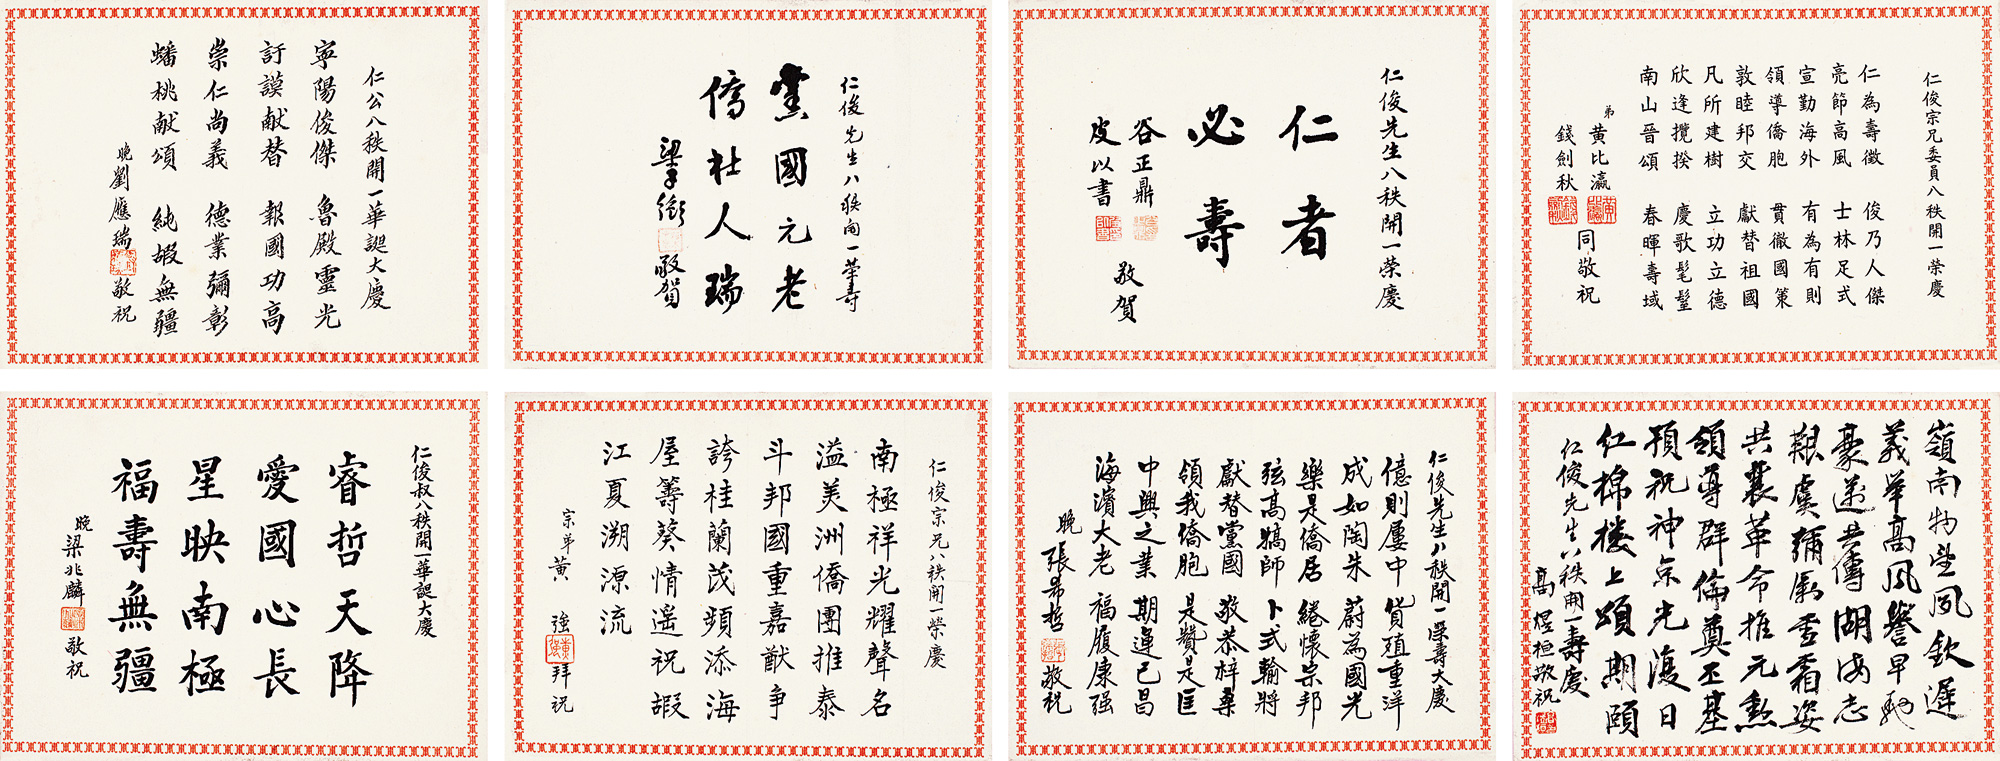 仁俊宗兄委員八秩開一榮慶
仁為壽徵 俊乃人傑
亮節高風 士林足式
宣勤海外 有為有則
領導僑胞 貫徹國策
敦睦邦交 獻替祖國
凡所建樹 立功立德
欣逢攬揆 慶歌髦髦
南山晉頌 春暉壽域
弟 黃比瀛
錢劍秋 同敬祝
仁俊先生八秩開一榮慶
仁者
必壽
谷正鼎
皮以書 敬賀
仁俊先生八秩開一華壽
黨國元老
僑社人瑞
梁子衡 敬賀
仁公八秩開一華誕大慶
寧陽俊傑 魯殿靈光
訏謨献替 報國功高
崇仁尚義 德業彌彰
蟠桃献頌 純嘏無疆
晚劉應瑞 敬祝
嶺南物望夙欽遲
義舉高風譽早馳
豪邁共傳湖海志
艱虞彌勵雪霜姿
共襄革命推元勲
領導群倫奠丕基
預祝神京光復日
紅棉樓上頌期頤
仁俊先生八秩開一壽慶
高煜桓敬祝
仁俊先生八秩開一榮壽大慶
億則屢中 貨殖重洋
成如陶朱 蔚為國光
樂是僑居 綣懷宗邦
弦高犒師 卜式輸將
獻替黨國 敬恭梓桑
領我僑胞 是贊是匡
中興之業 期運已昌
海濱大老 福履康强
晚 張希哲 敬祝
仁俊宗兄八秩開一榮慶
南極祥光耀聲名
溢美洲僑團推泰
斗邦國重嘉猷爭
誇桂蘭茂頻添海
屋籌葵情遥祝嘏
江夏溯源流
宗弟黃 強 拜祝
仁俊叔八秩開一華誕大慶
睿哲天降
愛國心長
星映南極
福壽無疆
晚梁兆麟 敬祝